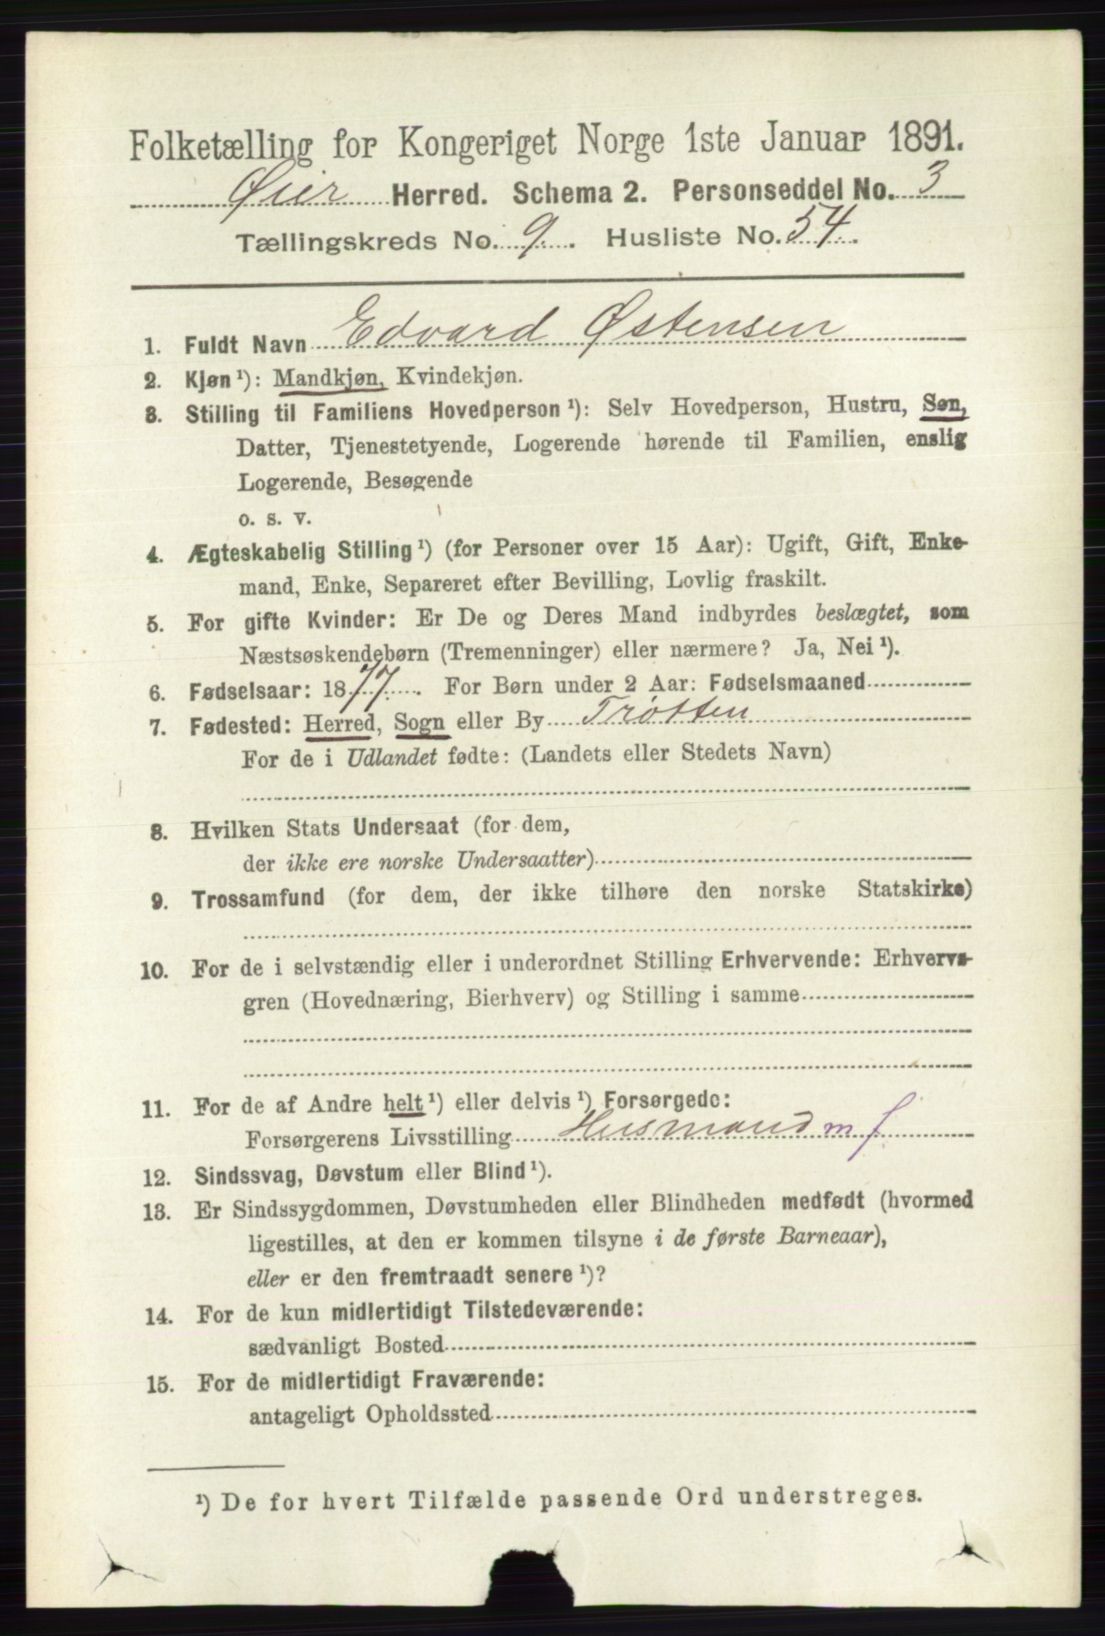 Folketælling for Kongeriget Norge 1ste Januar 1891.
Øier Herred. Schema 2. Personseddel No. 3
Tællingskreds No. 9. Husliste No. 54.
1. Fuldt Navn Edvard Østensen
2. Kjøn ¹): Mandkjøn, Kvindekjøn.
3. Stilling til Familiens Hovedperson ¹): Selv Hovedperson, Hustru, Søn,
Datter, Tjenestetyende, Logerende hørende til Familien, enslig
Logerende, Besøgende
o. s. v.
4. Ægteskabelig Stilling ¹) (for Personer over 15 Aar): Ugift, Gift, Enke-
mand, Enke, Separeret efter Bevilling, Lovlig fraskilt.
5. For gifte Kvinder: Er De og Deres Mand indbyrdes beslægtet, som
Næstsøskendebørn (Tremenninger) eller nærmere? Ja, Nei ¹).
6. Fødselsaar: 1877. For Børn under 2 Aar: Fødselsmaaned
7. Fødested: Herred, Sogn eller By Trøtten
For de i Udlandet fødte: (Landets eller Stedets Navn)
8. Hvilken Stats Undersaat (for dem,
der ikke ere norske Undersaatter)
9. Trossamfund (for dem, der ikke tilhøre den norske Statskirke)
10. For de i selvstændig eller i underordnet Stilling Erhvervende: Erhvervs-
gren (Hovednæring, Bierhverv) og Stilling i samme
11. For de af Andre helt ¹) eller delvis ¹) Forsørgede:
Forsørgerens Livsstilling Husmand m f
12. Sindssvag, Døvstum eller Blind ¹).
13. Er Sindssygdommen, Døvstumheden eller Blindheden medfødt (hvormed
ligestilles, at den er kommen tilsyne i de første Barneaar),
eller er den fremtraadt senere ¹)?
14. For de kun midlertidigt Tilstedeværende:
sædvanligt Bosted
15. For de midlertidigt Fraværende:
antageligt Opholdssted
¹) De for hvert Tilfælde passende Ord understreges.